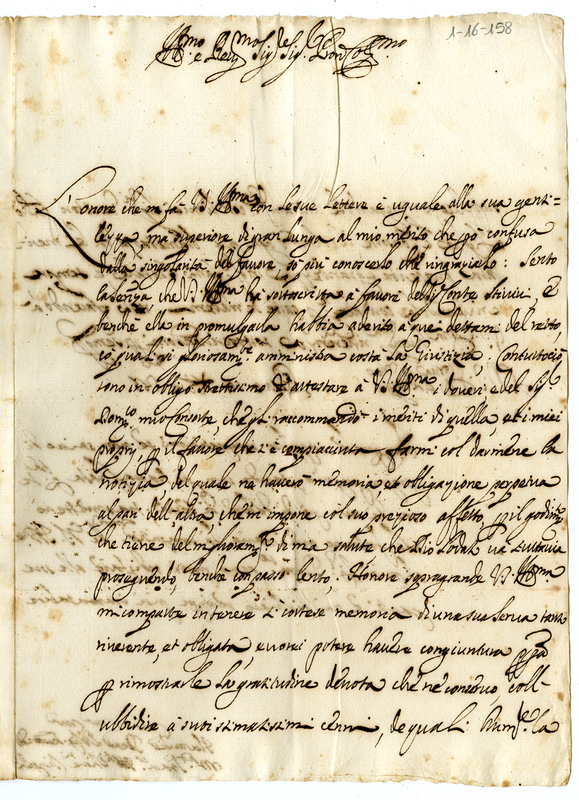 1-16-158
Ill.mo e Rev.mo Sig.r Sig.r Pron Col.mo
L'onore che mi fà V. S. Ill.ma con le sue lettere è uguale alla sua genti=
lezza, ma superiore di gran lunga al mio merito che confusa
dalla singolarità del favore, sò più conoscerlo che ringraziarlo: Sento
la senza, che V. S. Ill.ma ha sottoscritta à favore del Conte, è
benche ella in promulgarla habbia aderito à que dettami del retto,
co quali si gloriosam.te amministra costà la Giustizia, Contuttociò
sono in obligo strettissimo d'attestare à V. S. Ill.ma i doveri e del Sig.
mio Consorte, che gli raccommandò i meriti di quella, et i miei
proprij p il favore che s'è compiaciuta farmi col darmene la
notizia del quale ne haverò memoria, et obligazione perpetua
al pari dell'altra, che m'impone col suo prezioso affetto, p il godim.
che tiene del miglioram.to di mia salute che Dio Lodato và tuttavia
proseguendo, benche con passo lento. Honore sopragrande V. S. Ill.ma
mi comparte in tenere si cortese memoria di una sua serva tanto
riverente, et obligata, e vorei potere havere congiuntura
p rimostrarle la gratitudine devota che ne conservo coll-
ubbidire à suoi stimatissimi cenni, de quali hum.te la